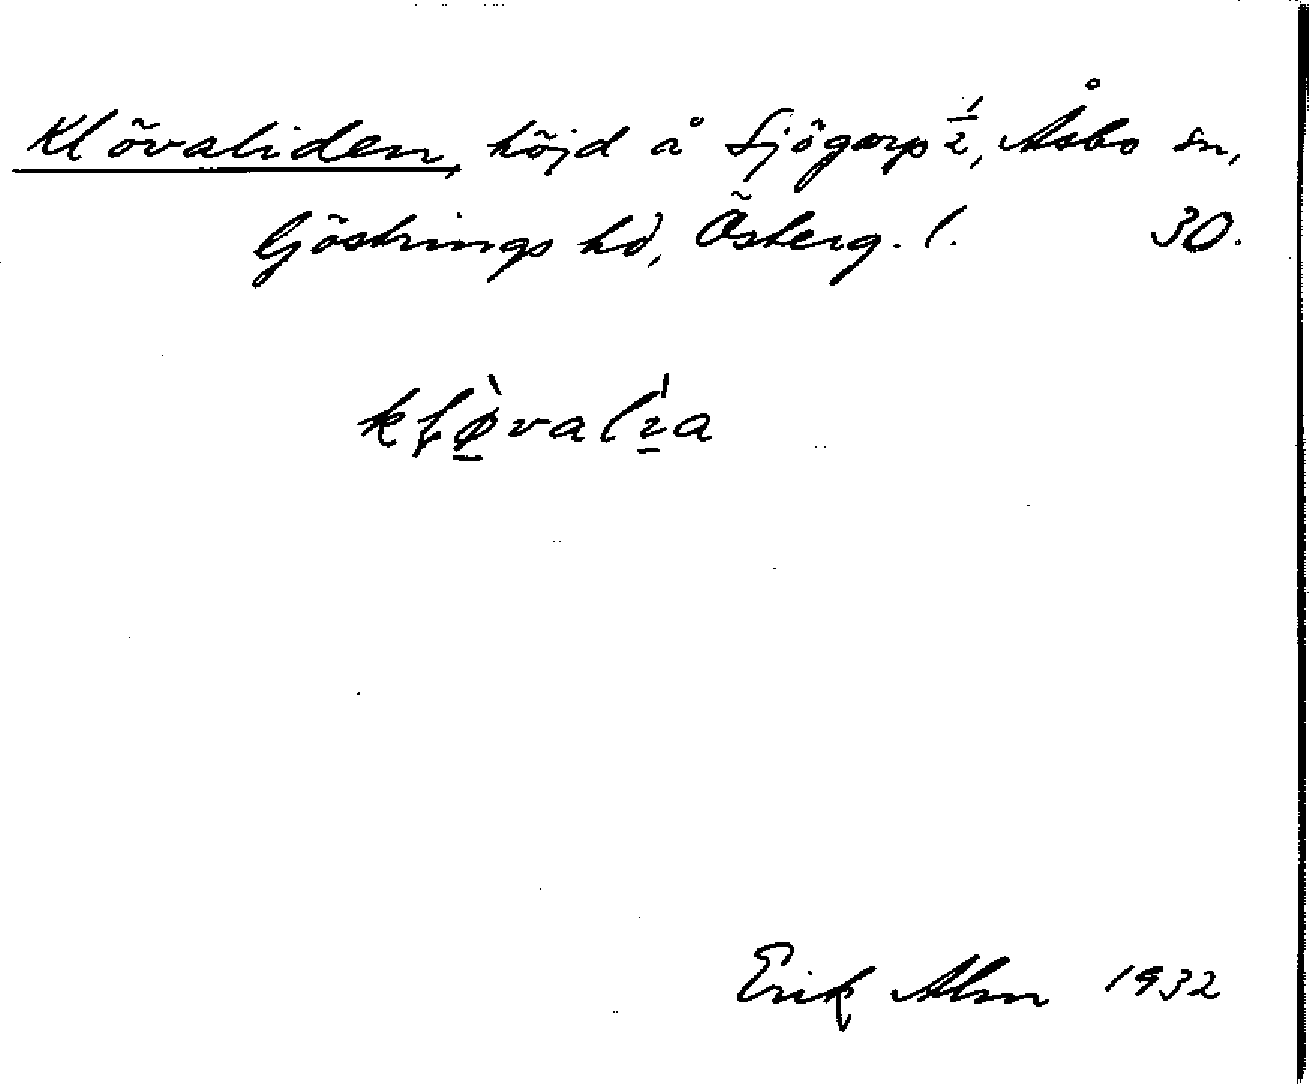 Klövaliden, höjd å Sjögarp ½, Åsbo sn,
Göstrings hd, Österg. l. 30.
kḷø̱̀valı̱́a
Erik Alm 1932